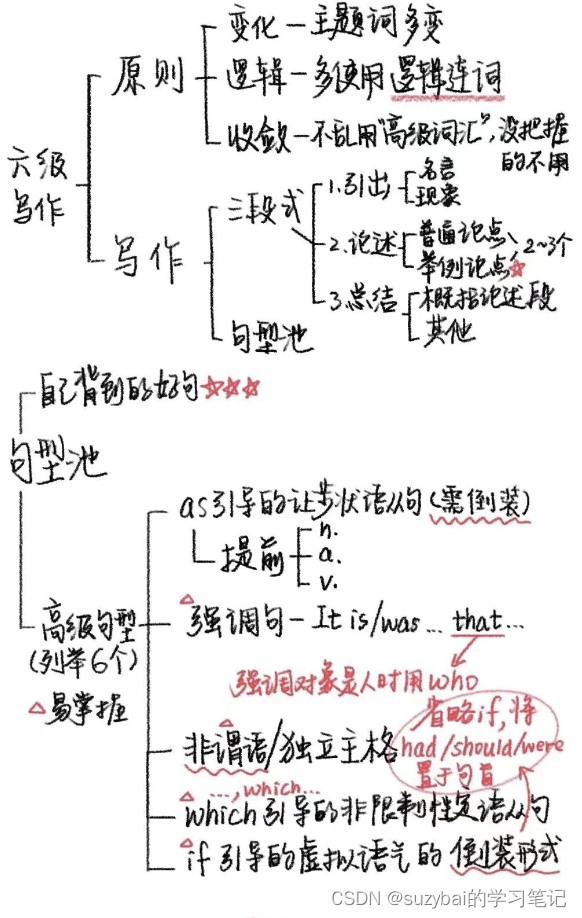 六级
写作
原则
变化－主题词多变
逻辑－多使用逻辑连词
收敛－不乱用“高级词汇”,没把握
的不用
写作
三段式
1.引出
名言
现象
2.论述
普遍论点、
举例论点☆
2~3个
3.总结
概括论述段
其他
句型池
句型池
自己背到的好句☆☆☆
高级句型
(列举6个)
△易掌握
as引导的让步状语从句(需倒装)
提前
n.
a.
v.
△强调句－It is/was … that…
强调对象是人时用who
△
非谓语/独立主格
省略if,将
had/should/were
置于句首
…,which…
△which引导的非限制性定语从句
△if引导的虚拟语气的倒装形式
CSDN @suzybai的学习笔记